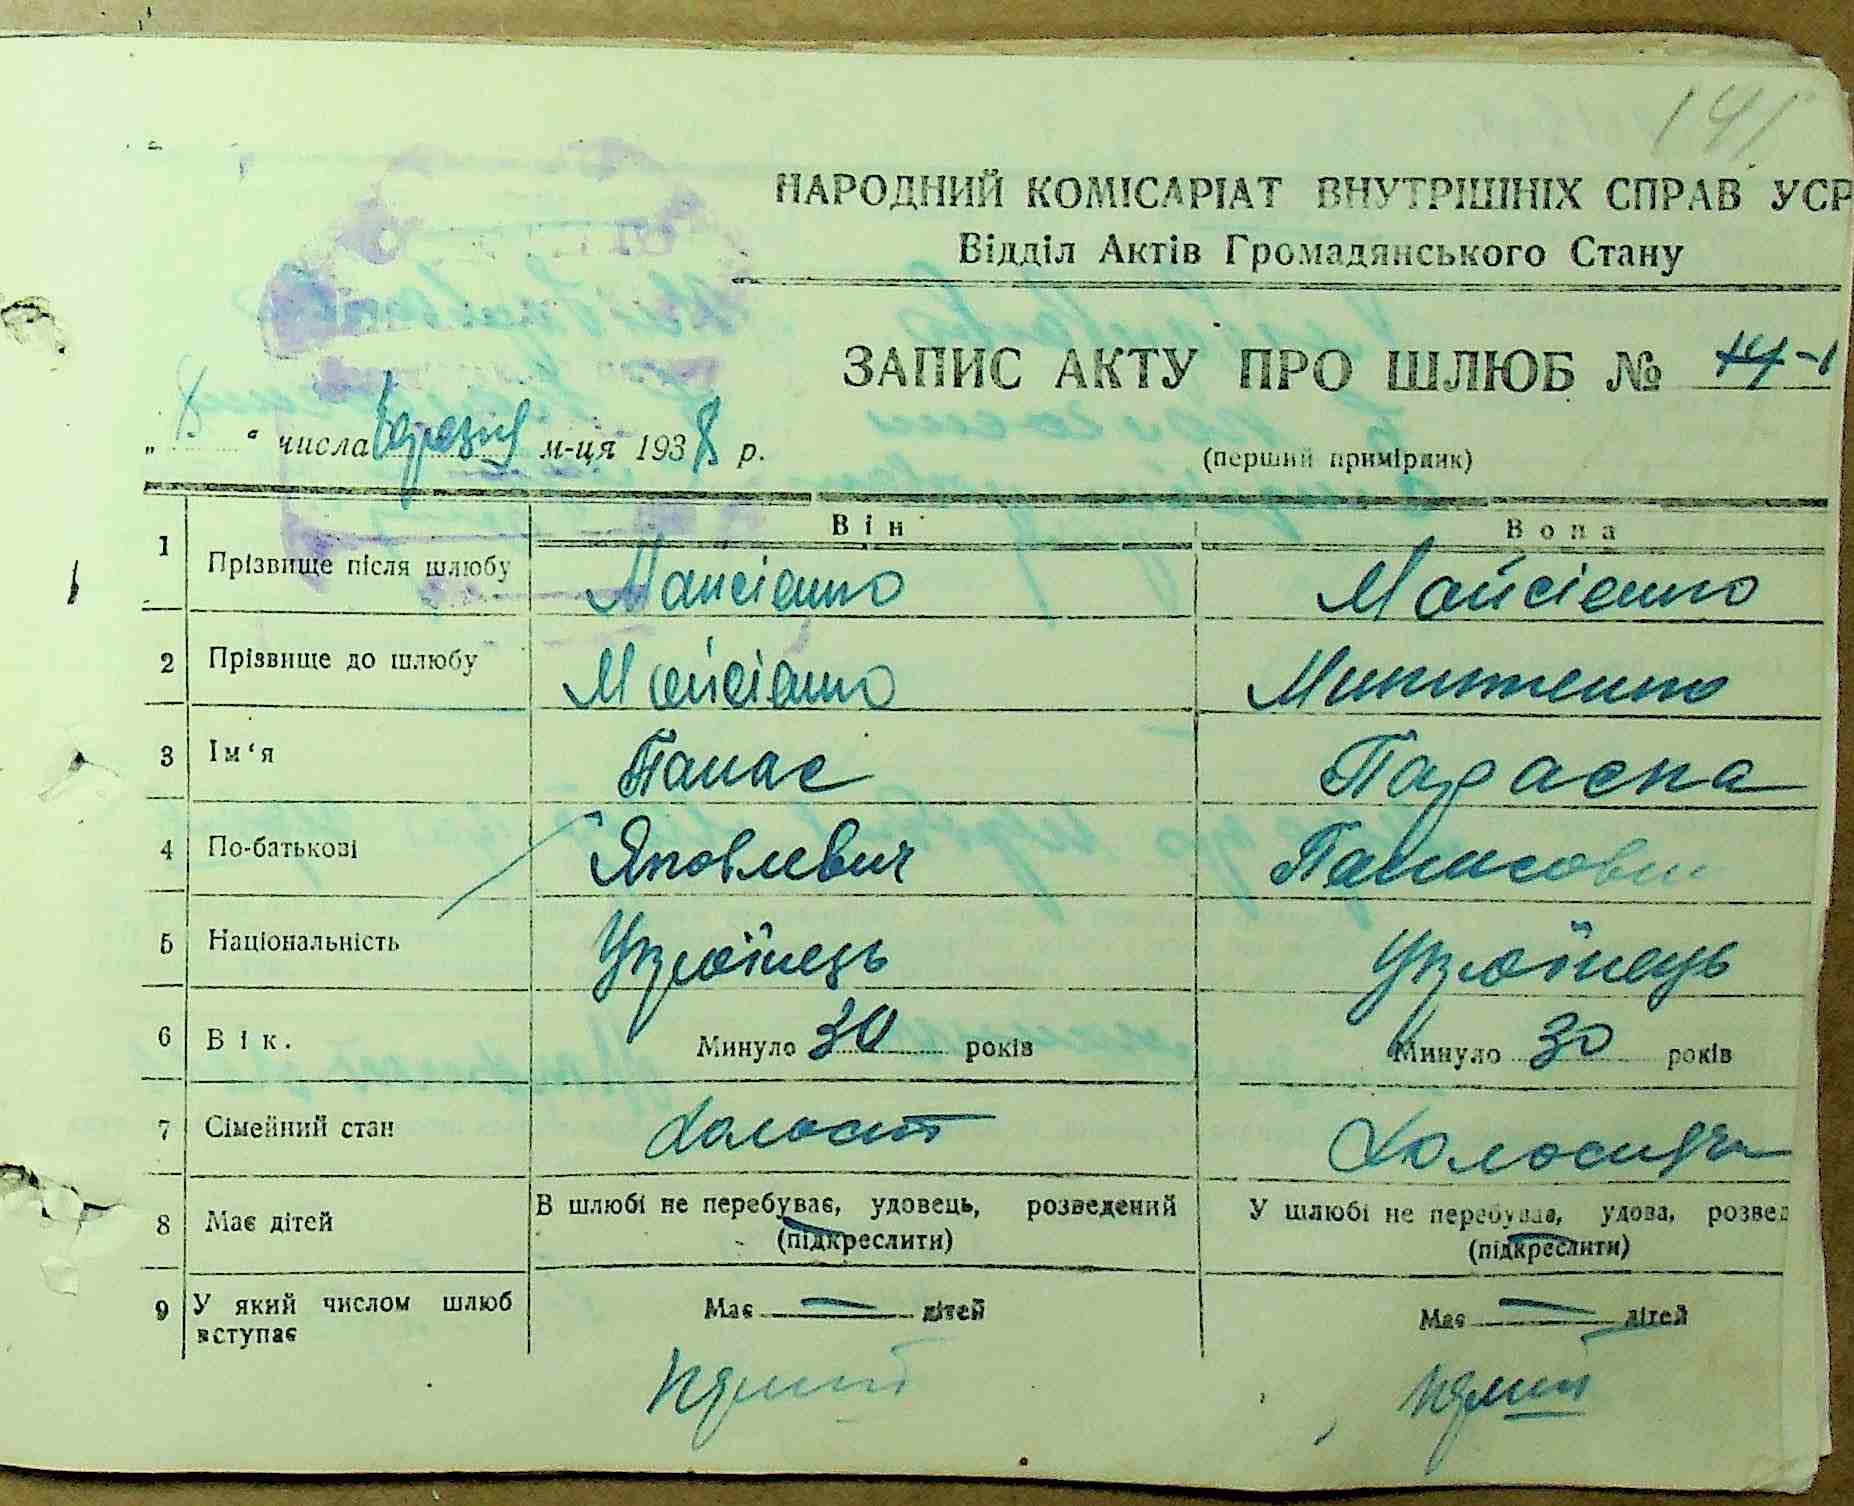 141
НАРОДНИЙ КОМІСАРІАТ ВНУТРІШНІХ СПРАВ УСР
Відділ Актів Громадянського Стану
ЗАПИС АКТУ ПРО ШЛЮБ №
(перший примірник)
„ 8 “ числа березня м-ця 1938 р.
Він Вона
1 Прізвище після шлюбу Мойсієнко Мойсієнко
2 Прізвище до шлюбу Мойсієнко Микитенко
3 Ім‘я Панас Параска
4 По-батькові Яковлевич
5 Національність Українець Українець
6 Вік. Минуло 30 років Минуло 30 років
7 Сімейний стан Холост
8 Має дітей В шлюбі не перебуває, удовець, розведений У шлюбі не перебуває, удова, розвед
(підкреслити) (підкреслити)
9 У який числом шлюб вступає Має — дітей Має — дітей